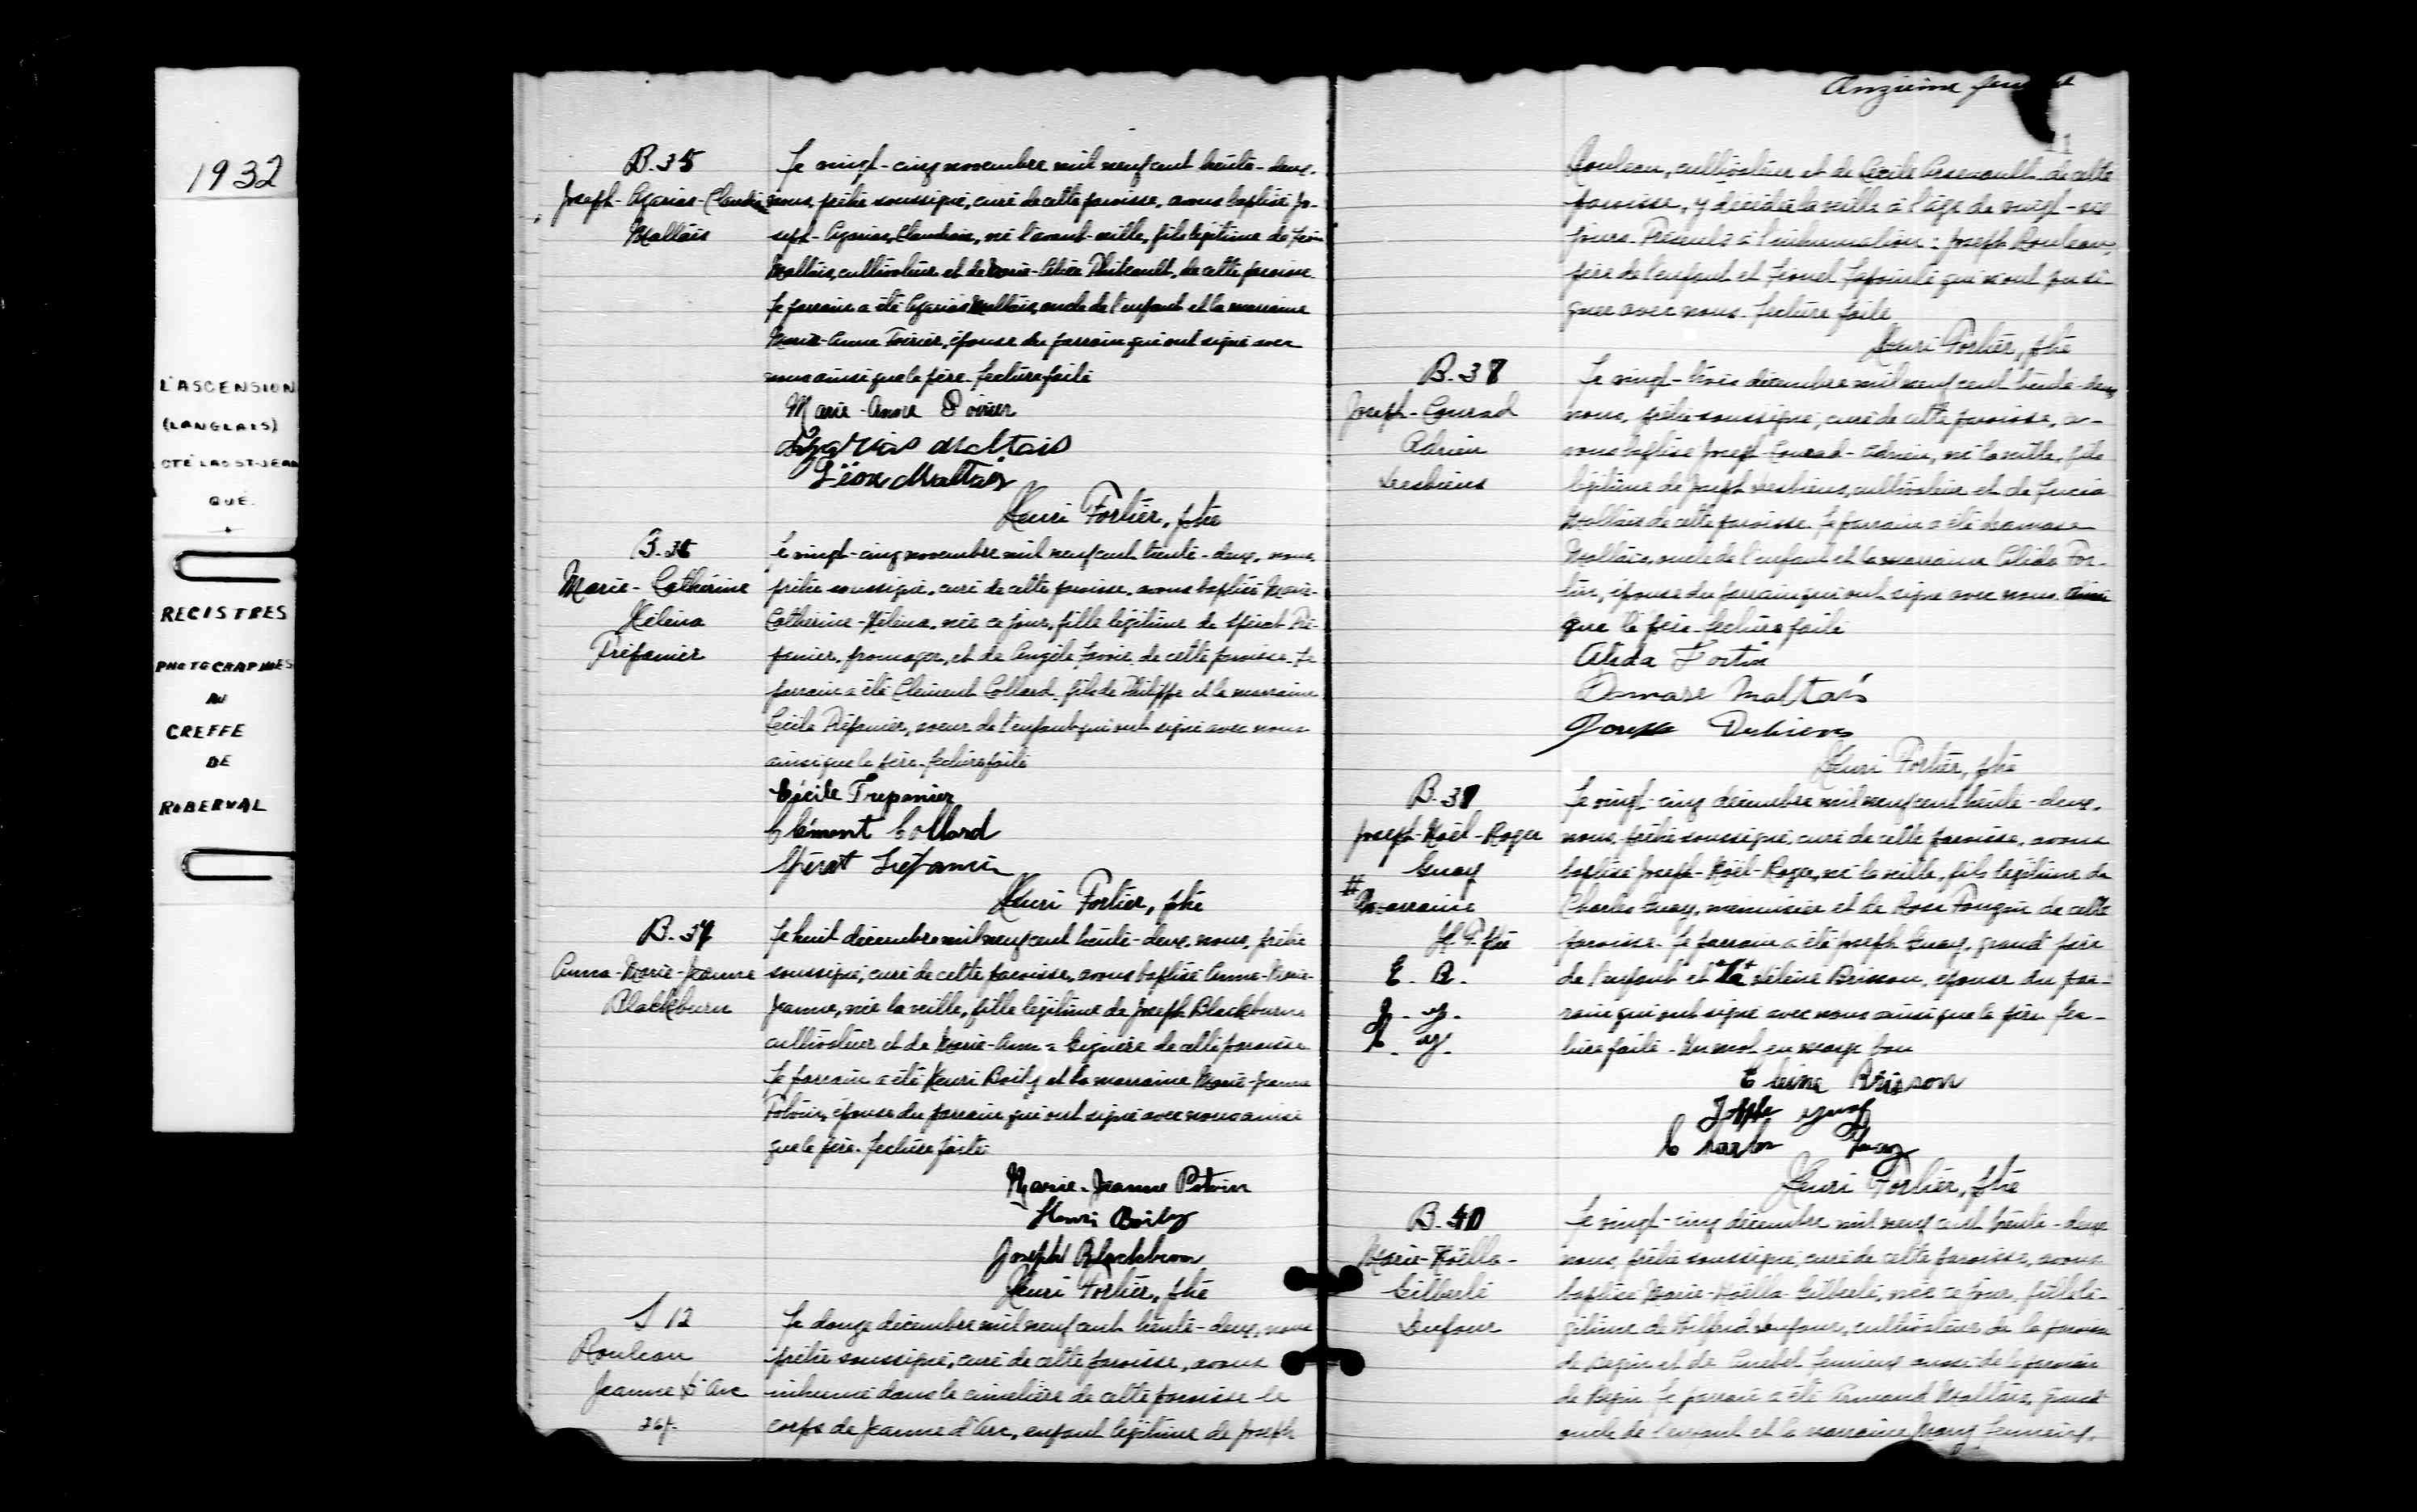 1932
L'ASCENSION
(LANGLAIS)
CTÉ LAC ST-JEAN
QUÉ.
REGISTRES
PHOTOGRAPHIÉS
AU
GREFFE
DE
ROBERVAL
B.35
Joseph-Azarias-Claudien
Maltais
Le vingt-cinq novembre mil neuf cent trente-deux,
nous, prêtre soussigné, curé de cette paroisse, avons baptisé Jo-
seph-Azarias, né l'avant-veille, fils légitime de Léon
Maltais, cultivateur et de Marie-Thibeault, de cette paroisse.
Le parrain a été Azarias Maltais, oncle de l'enfant et la marraine
Marie-Anne Poirier, épouse du parrain qui ont signé avec
nous ainsi que le père. Lecture faite
Marie-Anne Poirier
Azarias Maltais
Léon Maltais
Henri Fortier, ptre
B.36
Marie-Catherine
Héléna
Trépanier
Le vingt-cinq novembre mil neuf cent trente-deux, nous
prêtre soussigné, curé de cette paroisse, avons baptisé Marie-
Catherine-Héléna, née ce jour, fille légitime de Spérat Tré-
panier, fromager, et de Angèle Savoie de cette paroisse. Le
parrain a été Clément Collard, fils de Philippe et la marraine
Cécile Trépanier, soeur de l'enfant qui ont signé avec nous
ainsi que le père. Lecture faite
Cécile Trepanier
Clément Collard
Spérat Trépanier
Henri Fortier, ptre
B.37
Anna-Marie-Jeanne
Blackburn
Le huit décembre mil neuf cent trente-deux, nous, prêtre
soussigné, curé de cette paroisse, avons baptisé Anna-Marie-
Jeanne, née la veille, fille légitime de Joseph Blackburn
cultivateur et de Marie-Anna Gignière de cette paroisse
Le parrain a été Henri Boily et la marraine Marie-Jeanne
Potvin, épouse du parrain qui ont signé avec nous ainsi
que le père. Lecture faite
Marie-Jeanne Potvin
Henri Boily
Joseph Blackburn
Henri Fortier, ptre
S 12
Rouleau
Jeanne d'Arc
26j.
Le douze décembre mil neuf cent trente-deux, nous
prêtre soussigné, curé de cette paroisse, avons
inhumé dans le cimetière de cette paroisse le
corps de Jeanne d'Arc, enfant légitime de Joseph
Onzième
11
Rouleau, cultivateur et de Cécile Arsenault de cette
paroisse, y décédée la veille à l'âge de vingt-six
jours. Présents à l'inhumation: Joseph Rouleau,
père de l'enfant et Lionel Lapointe qui n'ont pu si-
gner avec nous. Lecture faite
Henri Fortier, ptre
B.38
Joseph-Conrad
Adrien
Desbiens
Le vingt-trois décembre mil neuf cent trente-deux
nous, prêtre soussigné, curé de cette paroisse, a-
vons baptisé Joseph-Conrad-Adrien, né la veille, fils
légitime de Joseph Desbiens, cultivateur et de Lucia
Maltais de cette paroisse. Le parrain a été Damase
Maltais, oncle de l'enfant et la marraine Alida For-
tin, épouse du parrain qui ont signé avec nous ainsi
que le père. Lecture faite
Alida Fortin
Damase Maltais
Joseph Desbiens
Henri Fortier, ptre
B.39
Joseph-Noël-Roger
Guay
# Marraine
H.F. ptre
E. B.
J. G.
C. G.
Le vingt-cinq décembre mil neuf cent trente-deux,
nous, prêtre soussigné, curé de cette paroisse, avons
baptisé Joseph-Noël-Roger, né la veille, fils légitime de
Charles Guay, menuisier et de Rose de cette
paroisse. Le parrain a été Joseph Guay, grand père
de l'enfant et la # Brisson, épouse du par-
rain qui ont signé avec nous ainsi que le père. Lec-
ture faite. Un mot en marge bon
Brisson
Guay
Charles Guay
Henri Fortier, ptre
B.40
Marie-Noëlla-
Gilberte
Dufour
Le vingt-cinq décembre mil neuf cent trente-deux
nous, prêtre soussigné, curé de cette paroisse, avons
baptisé Marie-Noëlla-Gilberte, née ce jour, fille lé-
gitime de Wilfrid Dufour, cultivateur de la paroisse
de Bégin et de Lemieux aussi de la paroisse
de Bégin. Le parrain a été Armand Maltais, grand
oncle de l'enfant et la marraine Mary Lemieux,